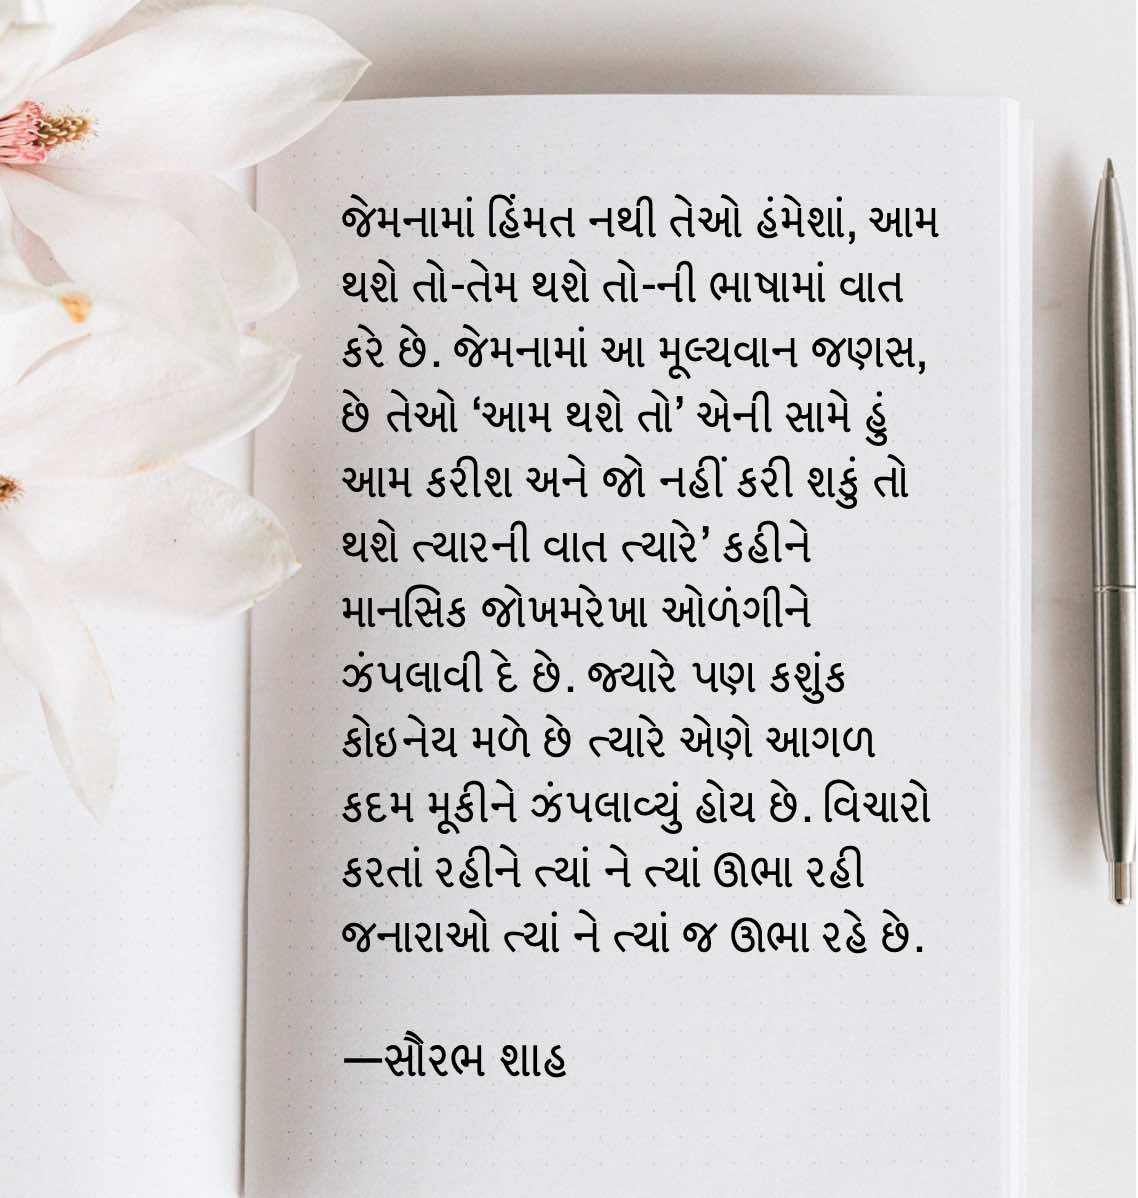 જેમનામાં હિંમત નથી તેઓ હંમેશાં, આમ
થશે તો-તેમ થશે તો-ની ભાષામાં વાત
કરે છે. જેમનામાં આ મૂલ્યવાન જણસ,
છે તેઓ ‘આમ થશે તો’ એની સામે હું
આમ કરીશ અને જો નહીં કરી શકું તો
થશે ત્યારની વાત ત્યારે’ કહીને
માનસિક જોખમરેખા ઓળંગીને
ઝંપલાવી દે છે. જ્યારે પણ કશુંક
કોઇનેય મળે છે ત્યારે એણે આગળ
કદમ મૂકીને ઝંપલાવ્યું હોય છે. વિચારો
કરતાં રહીને ત્યાં ને ત્યાં ઊભા રહી
જનારાઓ ત્યાં ને ત્યાં જ ઊભા રહે છે.
—સૌરભ શાહ